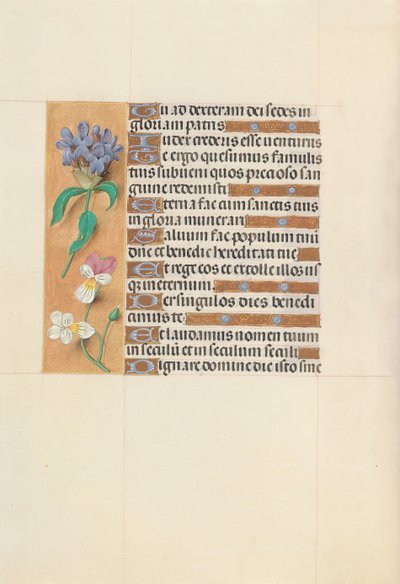 Tu ad dexteram dei sedes in
gloria m patris
Iudex crederis esse venturus
Te ergo quesumus famulis
tuis subueni quos precioso san
guine redemisti
Aeterna fac cum sanctis tuis
in gloria munerari
Saluum fac populum tuū
dn̄e et benedic hereditati tue
Et rege eos et extolle illos us
q; in eternum
Per singulos dies benedi
cimus te
Et laudamus nomen tuum
in seculū et in seculum seculi
Dignare domine die isto sine